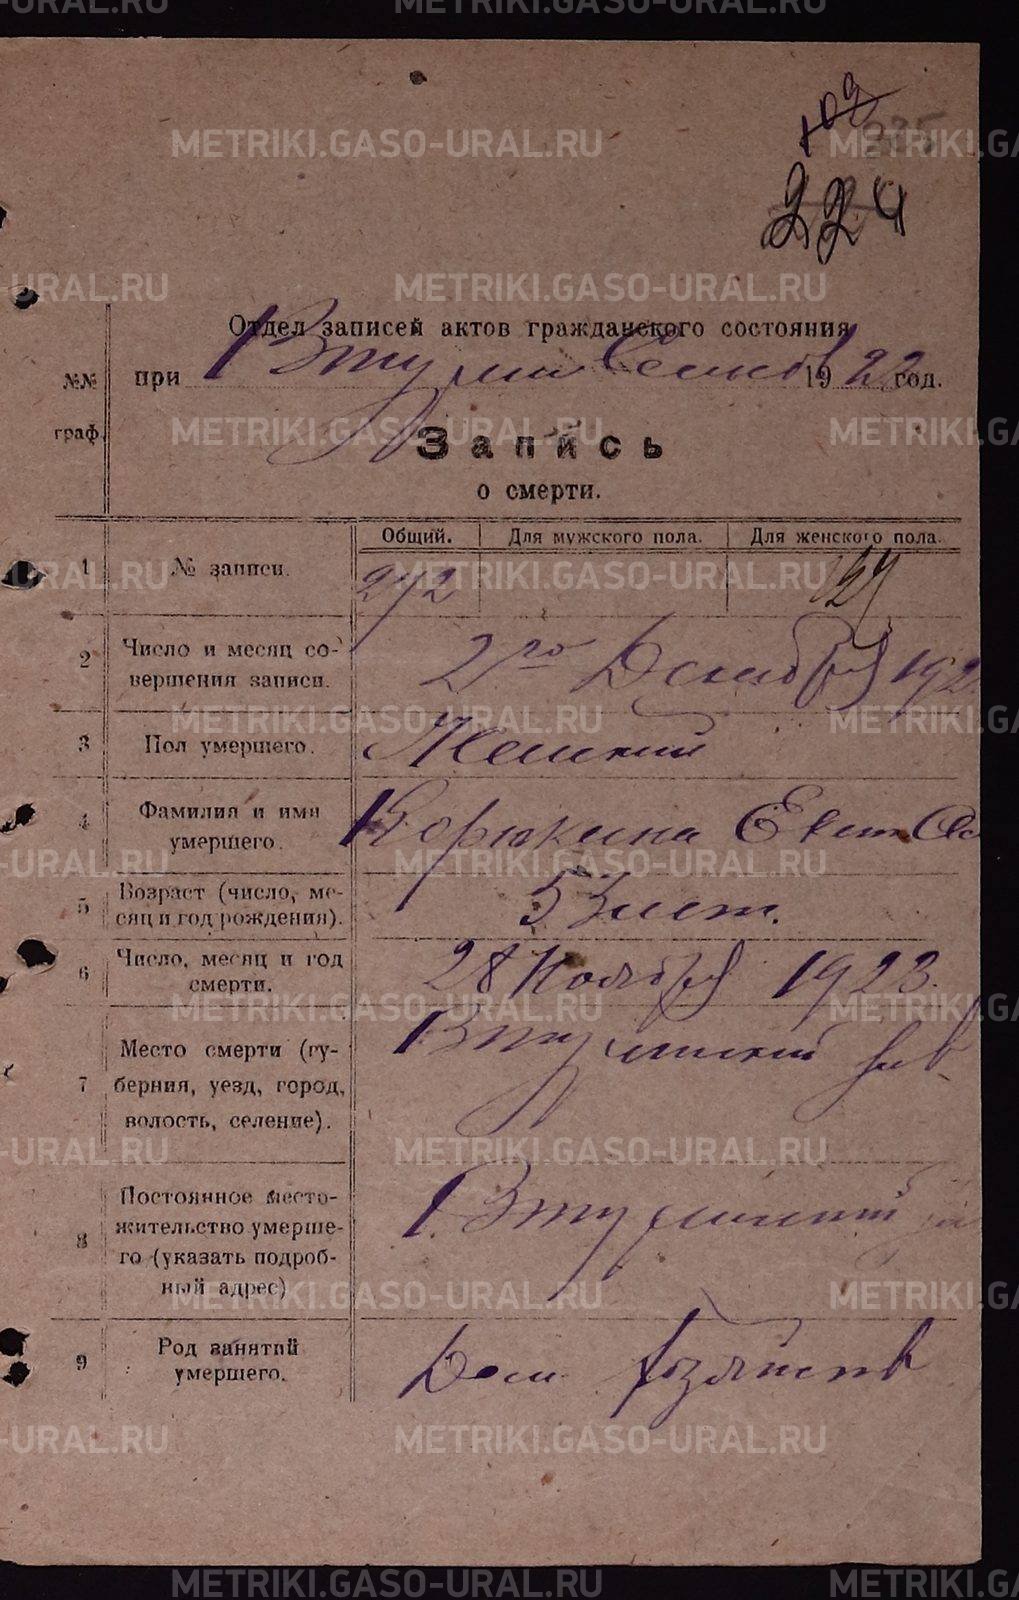 METRIKI.GASO-URAL.RU
102
235
224
Отдел записей актов гражданского состояния
при 1922 год.
№№ граф.
Запись
о смерти.
Общий. Для мужского пола. Для женского пола.
1 № записи. 272 129
2 Число и месяц совершения записи. 2го Декабря 192
3 Пол умершего. Женский
4 Фамилия и имя умершего. Корюкина Екат
5 Возраст (число, месяц и год рождения). 53 лет.
6 Число, месяц и год смерти. 28 Ноября 1923.
7 Место смерти (губерния, уезд, город, волость, селение). Втузлинский зав
8 Постоянное местожительство умершего (указать подробный адрес)
9 Род занятий умершего. Дом. хозяйств